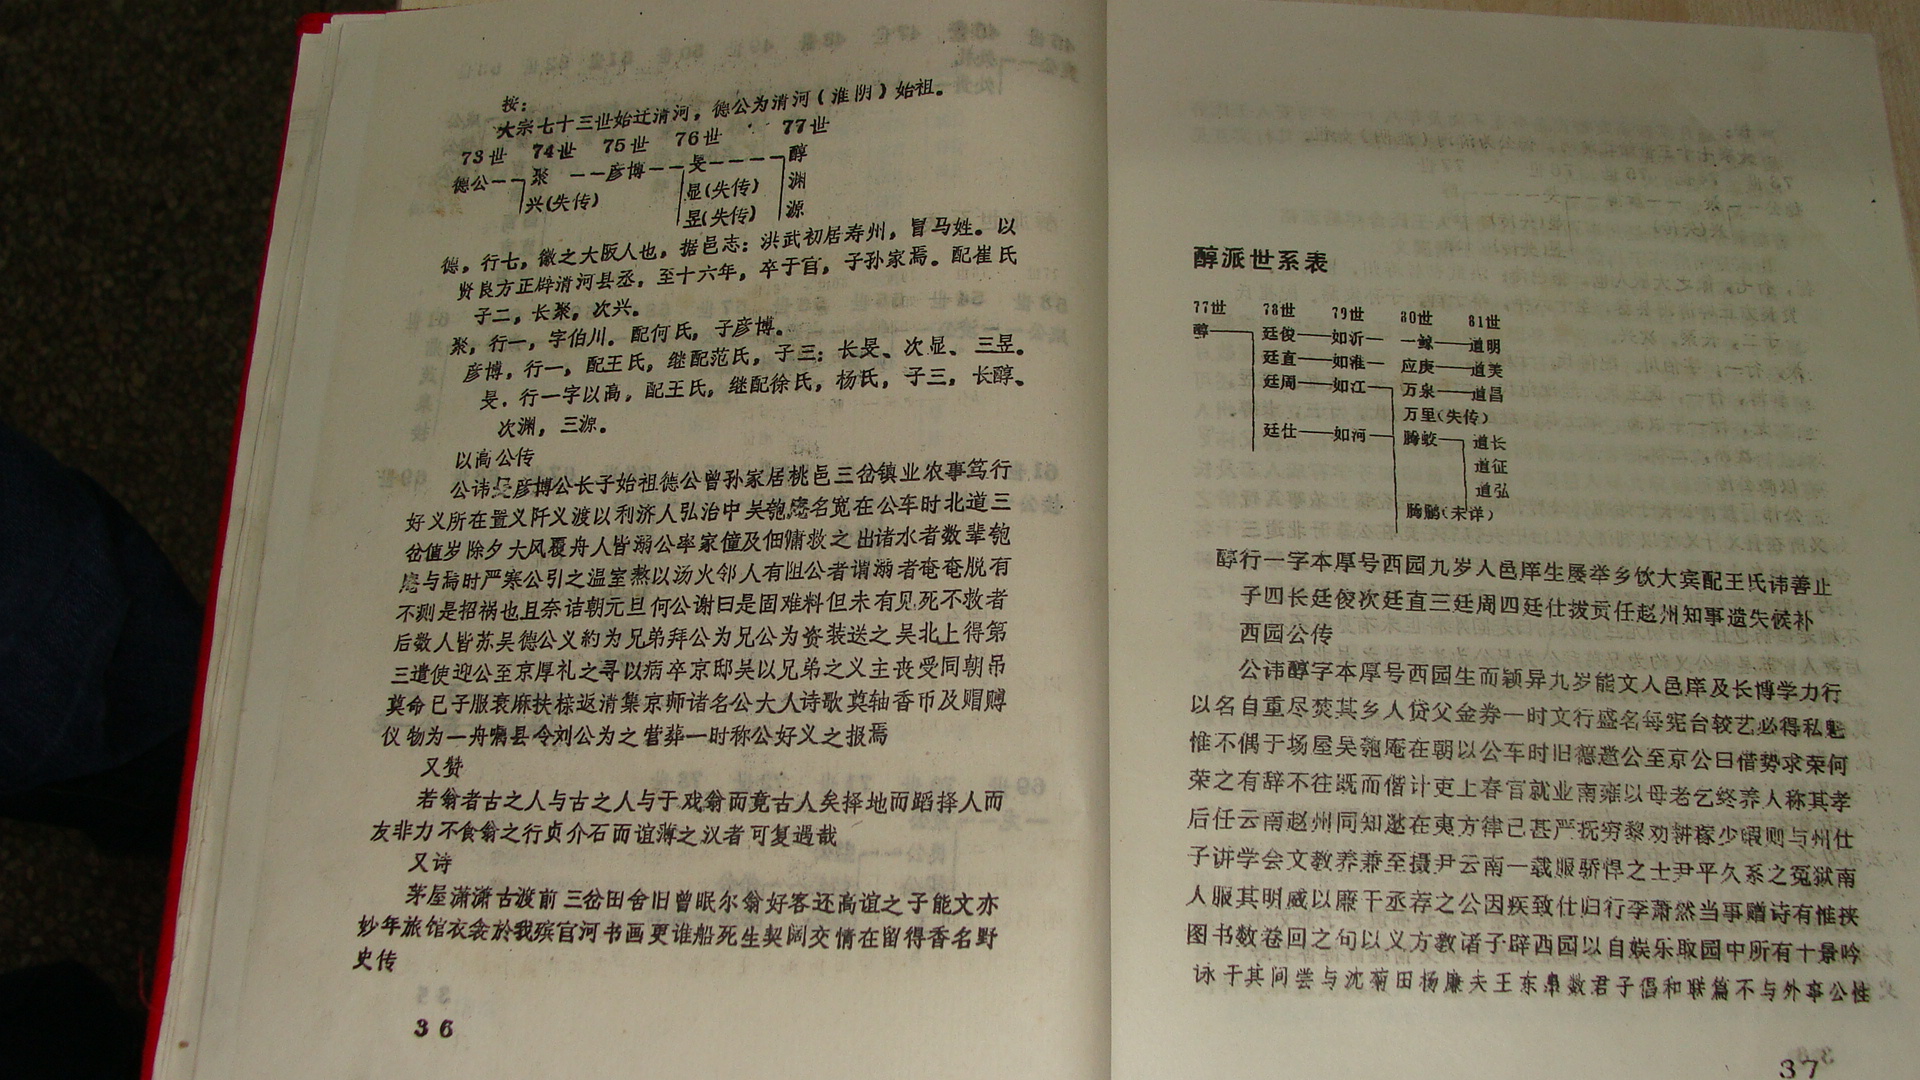 按：
大宗七十三世始迁清河，德公为清河（淮阴）始祖。
73世 74世 75世 76世 77世
德公——聚——彦博——旻————醇
兴(失传) 显(失传) 渊
昱(失传) 源
德，行七，徽之大阪人也，据邑志：洪武初居寿州，冒马姓。以
贤良方正辟清河县丞，至十六年，卒于官，子孙家焉。配崔氏
子二，长聚，次兴。
聚，行一，字伯川。配何氏，子彦博。
彦博，行一，配王氏，继配范氏，子三：长旻、次显、三昱。
旻．行一字以高，配王氏，继配徐氏，杨氏，子三，长醇、
次渊，三源。
以高公传
公讳旻彦博公长子始祖德公曾孙家居桃邑三岔镇业农事笃行
好义所在置义阡义渡以利济人弘治中吴匏庵名宽在公车时北道三
岔值岁除夕大风覆舟人皆溺公率家僮及佃傭救之出诸水者数辈匏
庵与焉时严寒公引之温室熬以汤火邻人有阻公者谓溺者奄奄脱有
不测是招祸也且奈诘朝元旦何公谢曰是固难料但未有见死不救者
后数人皆苏吴德公义約为兄弟拜公为兄公为资装送之吴北上得第
三遣使迎公至京厚礼之寻以病卒京邸吴以兄弟之义主丧受同朝吊
奠命已子服衰麻扶榇返清集京师诸名公大人诗歌奠轴香币及赗赙
仪物为一舟嘱县令刘公为之营葬一时称公好义之报焉
又赞
若翁者古之人与古之人与于戏翁而竟古人矣择地而蹈择人而
友非力不食翁之行贞介石而谊薄之汉者可复遇哉
又诗
茅屋潇潇古渡前三岔田舍旧曾眠尔翁好客还高谊之子能文亦
妙年旅馆衣衾於我殡官河书画更谁船死生契阔交情在留得香名野
史传
36
醇派世系表
77世 78世 79世 80世 81世
醇 廷俊——如沂—一鲸——道明
廷直——如淮—应庚——道美
廷周——如江 万泉——道昌
万里(失传)
廷仕——如河 腾蛟——道长
道征
道弘
腾鹏(未详)
醇行一字本厚号西园九岁入邑庠生屡举乡饮大宾配王氏讳善止
子四长廷俊次廷直三廷周四廷仕拔贡任赵州知事遗失候补
西园公传
公讳醇字本厚号西园生而颖异九岁能文入邑庠及长博学力行
以名自重尽焚其乡人贷父金券一时文行盛名每宪台较艺必得私魁
惟不偶于场屋吴匏庵在朝以公车时旧德邀公至京公曰借势求荣何
荣之有辞不往既而偕计吏上春官就业南雍以母老乞终养人称其孝
后任云南赵州同知逖在夷方律己甚严抚穷黎劝耕稼少暇则与州仕
子讲学会文教养兼至摄尹云南一载服骄悍之士尹平久系之冤狱南
人服其明威以廉干丞荐之公因疾致仕归行李萧然当事赠诗有惟挟
图书数卷回之句以义方教诸子辟西园以自娱乐取园中所有十景吟
咏于其间尝与沈菊田杨廉夫王东皋数君子倡和联篇不与外事公性
37